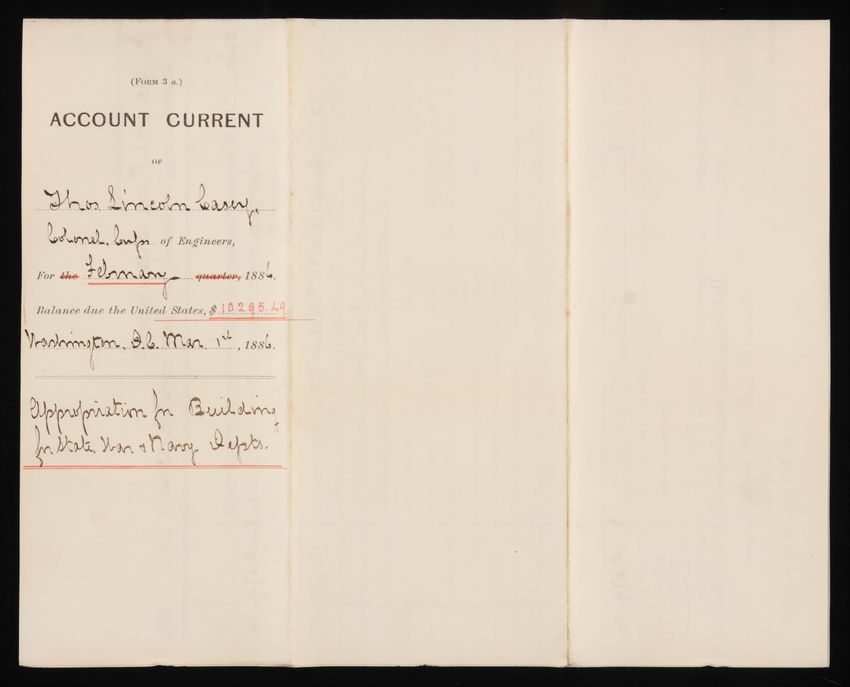 (FORM 3 a.)
ACCOUNT CURRENT
OF
Thos. Lincoln Casey,
Colonel, Corps of Engineers,
For the February quarter, 1886.
Balance due the United States, $10295.49
Washington, D.C. Mar. 1st, 1886.
Appropriation for Building
for State War & Navy Depts.